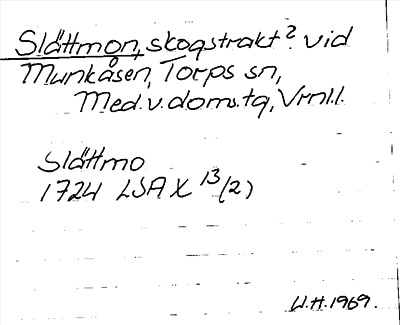 Slättmon, skogstrakt? vid
Munkåsen, Torps sn,
Med.v.doms.tg, Vrnl.l.
Slättmo
1724 LSA X 13/(2)
W.H. 1969.